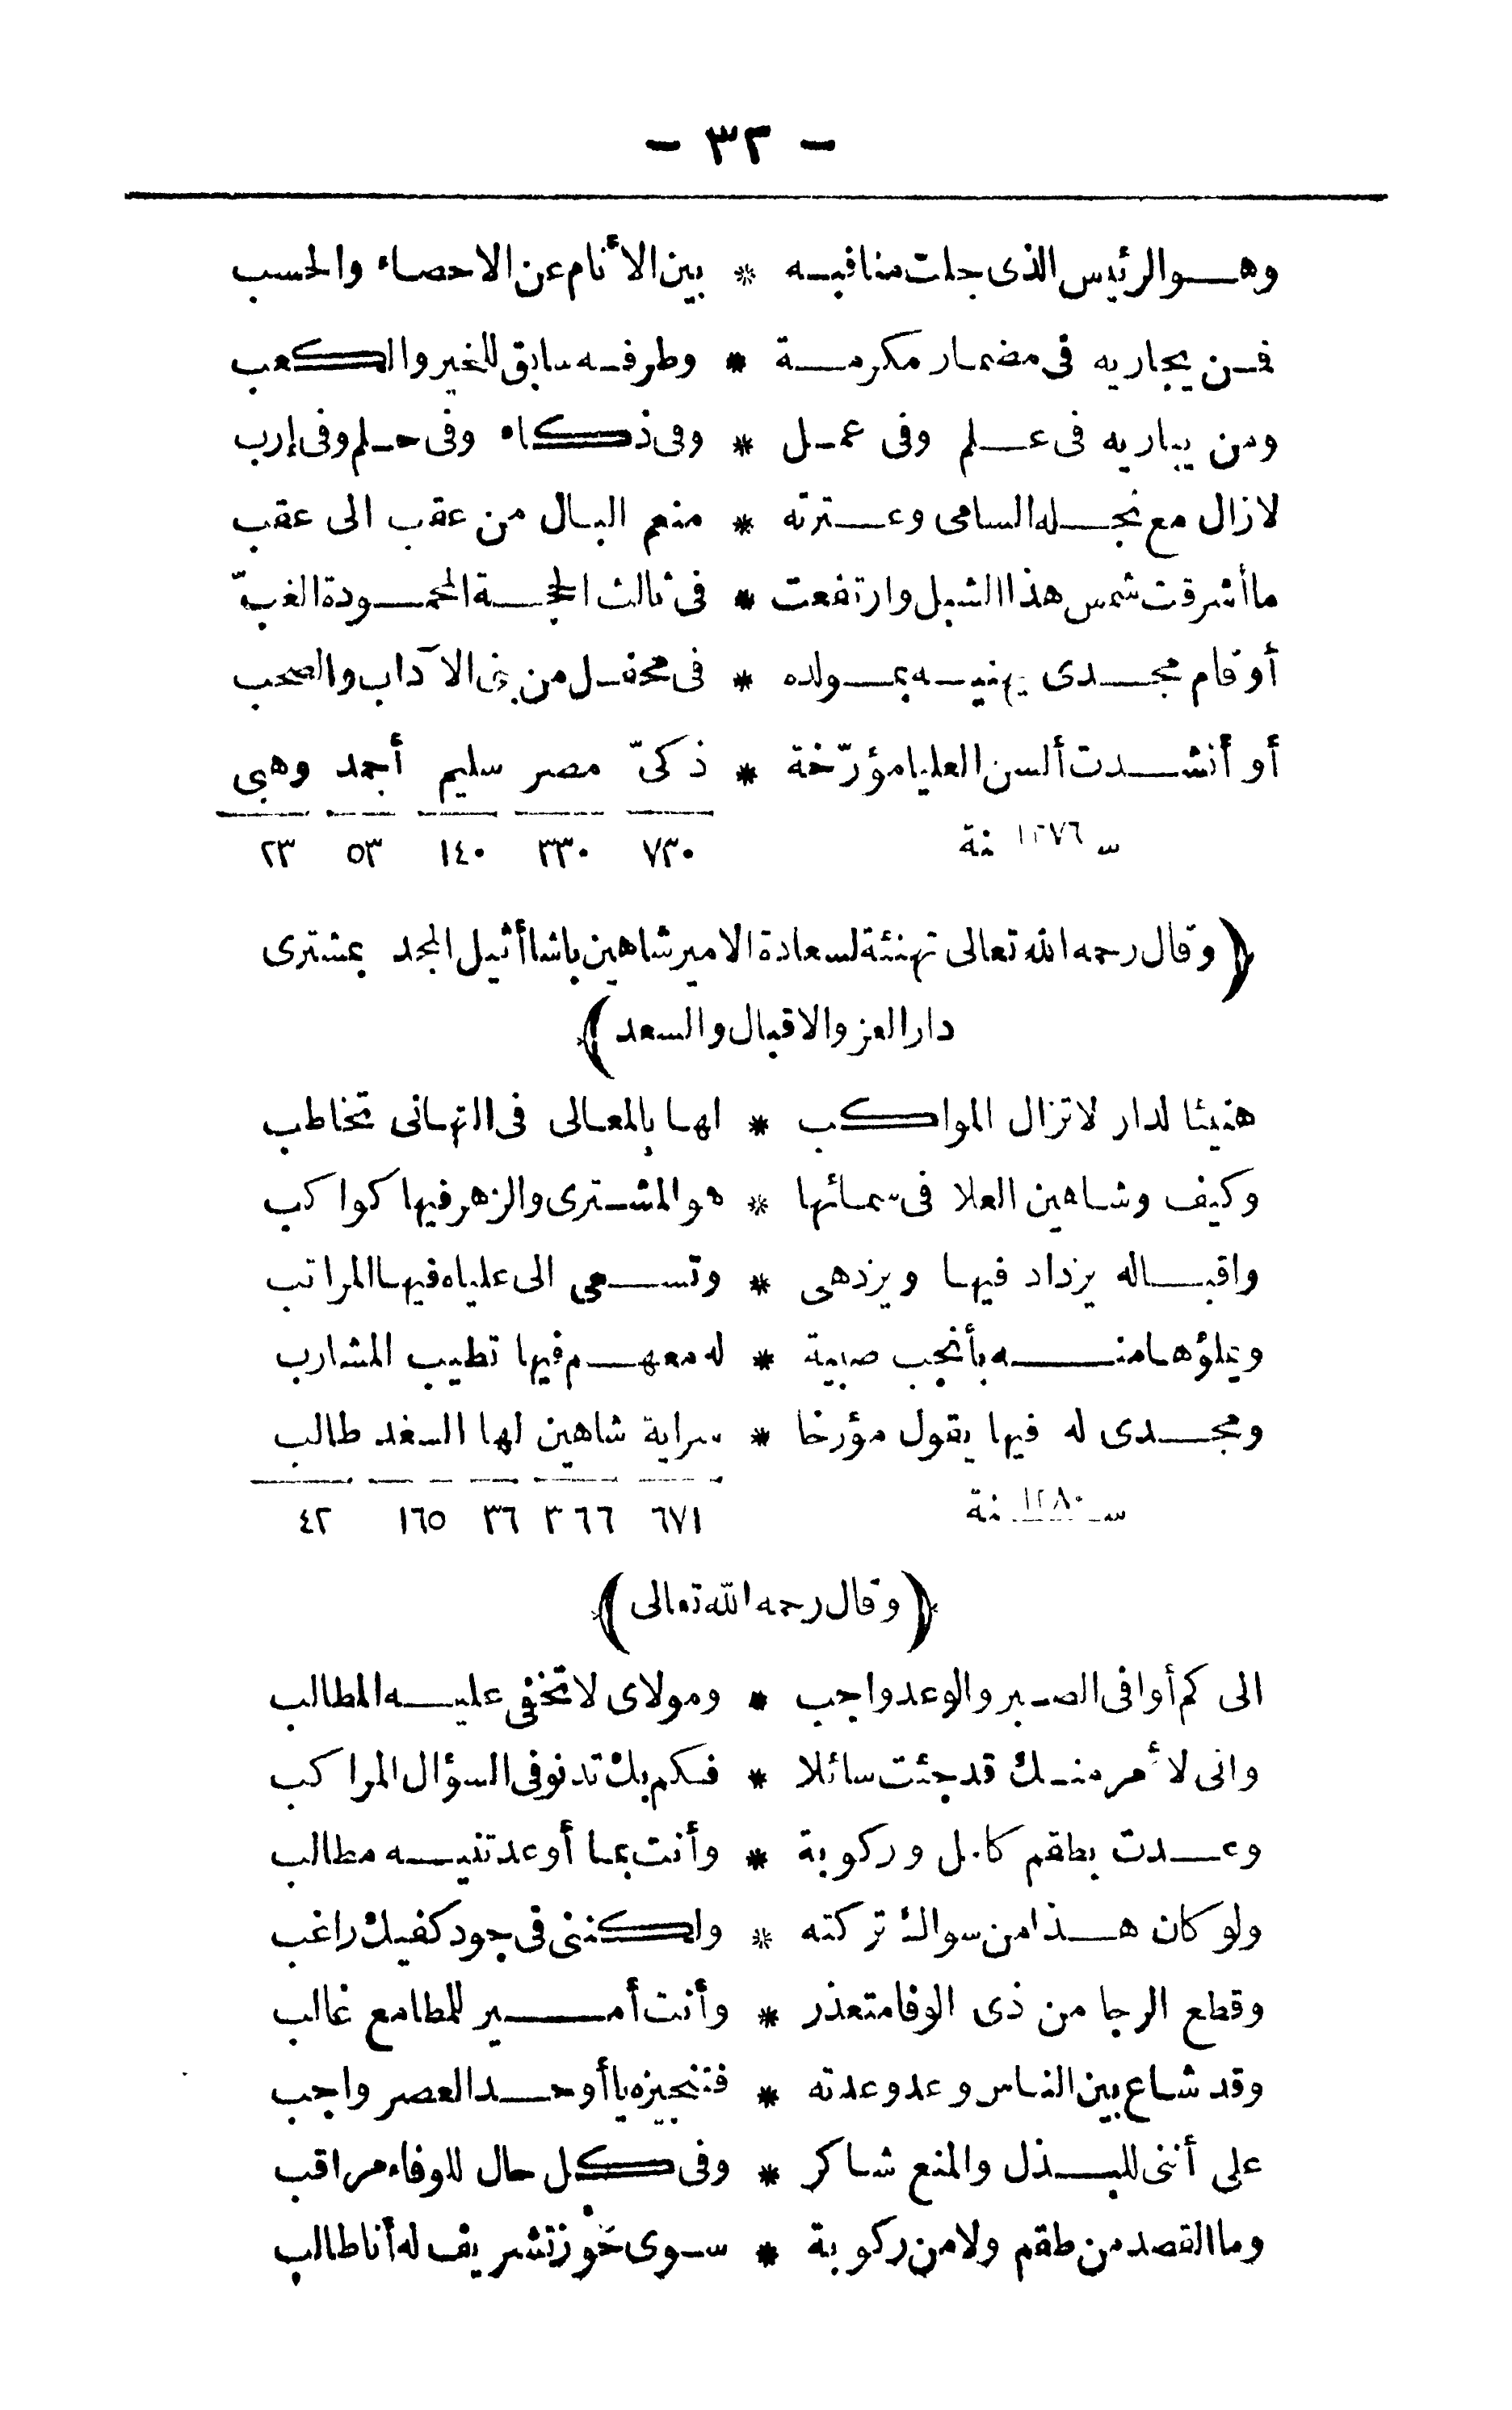 - ٣٣ -
وهو الرئيس الذى جلت مناقبه * بين الأنام عن الاحصاء والحسب
فمن يجاريه فى مضمار مكرمة * وطرفه سابق للخير والكعب
ومن يباريه فى علم وفى عمل * وفى ذكاه وفى حلم وفى إرب
لازال مع نجله السامى وعترته * منعم البال من عقب الى عقب
ما أشرقت شمس هذا الشبل وارتفعت * فى ثالث الحجة المحمودة الغبّ
أو قام مجدى يهنيه بمولده * فى محفل من بنى الآداب والصحب
أو أنشدت ألسن العليا مؤرّخة * ذكىّ مصر سليم أجمد وهبى
سنة ١٢٧٦ ٧٣٠ ٣٣٠ ١٤٠ ٥٣ ٢٣
﴿وقال رحمه الله تعالى تهنئة لسعادة الامير شاهين باشا أثيل المجد بمشترى
دار العز والاقبال والسعد﴾
هنيئا لدار لاتزال المواكب * لها بالمعالى فى التهانى تخاطب
وكيف وشاهين العلا فى سمائها * هو المشترى والزهر فيها كواكب
واقباله يزداد فيها ويزدهى * وتسعى الى علياه فيها المراتب
ويملؤها منه بأنجب صبية * له معهم فيها تطيب المشارب
ومجدى له فيها يقول مؤرخا * سراية شاهين لها السغد طالب
سنة ١٢٨٠ ٦٧١ ٣٦٦ ٣٦ ١٦٥ ٤٢
﴿وقال رحمه الله تعالى﴾
الى كم أوافى الصبر والوعد واجب * ومولاى لاتخفى عليه المطالب
وانى لأمر منك قد جئت سائلا * فكم بك تدنو فى السؤال المراكب
وعدت بطقم كامل وركوبة * وأنت بما أوعدتنيه مطالب
ولو كان هذا من سواك تركته * ولكننى فى جود كفيك راغب
وقطع الرجا من ذى الوفا متعذر * وأنت أمير للمطامع غالب
وقد شاع بين الناس وعد وعدته * فتنجيزه يا أوحد العصر واجب
على أننى للبذل والمنع شاكر * وفى كل حال للوفاء مراقب
وما القصد من طقم ولا من ركوبة * سوى حَوْز تشريف له أنا طالب